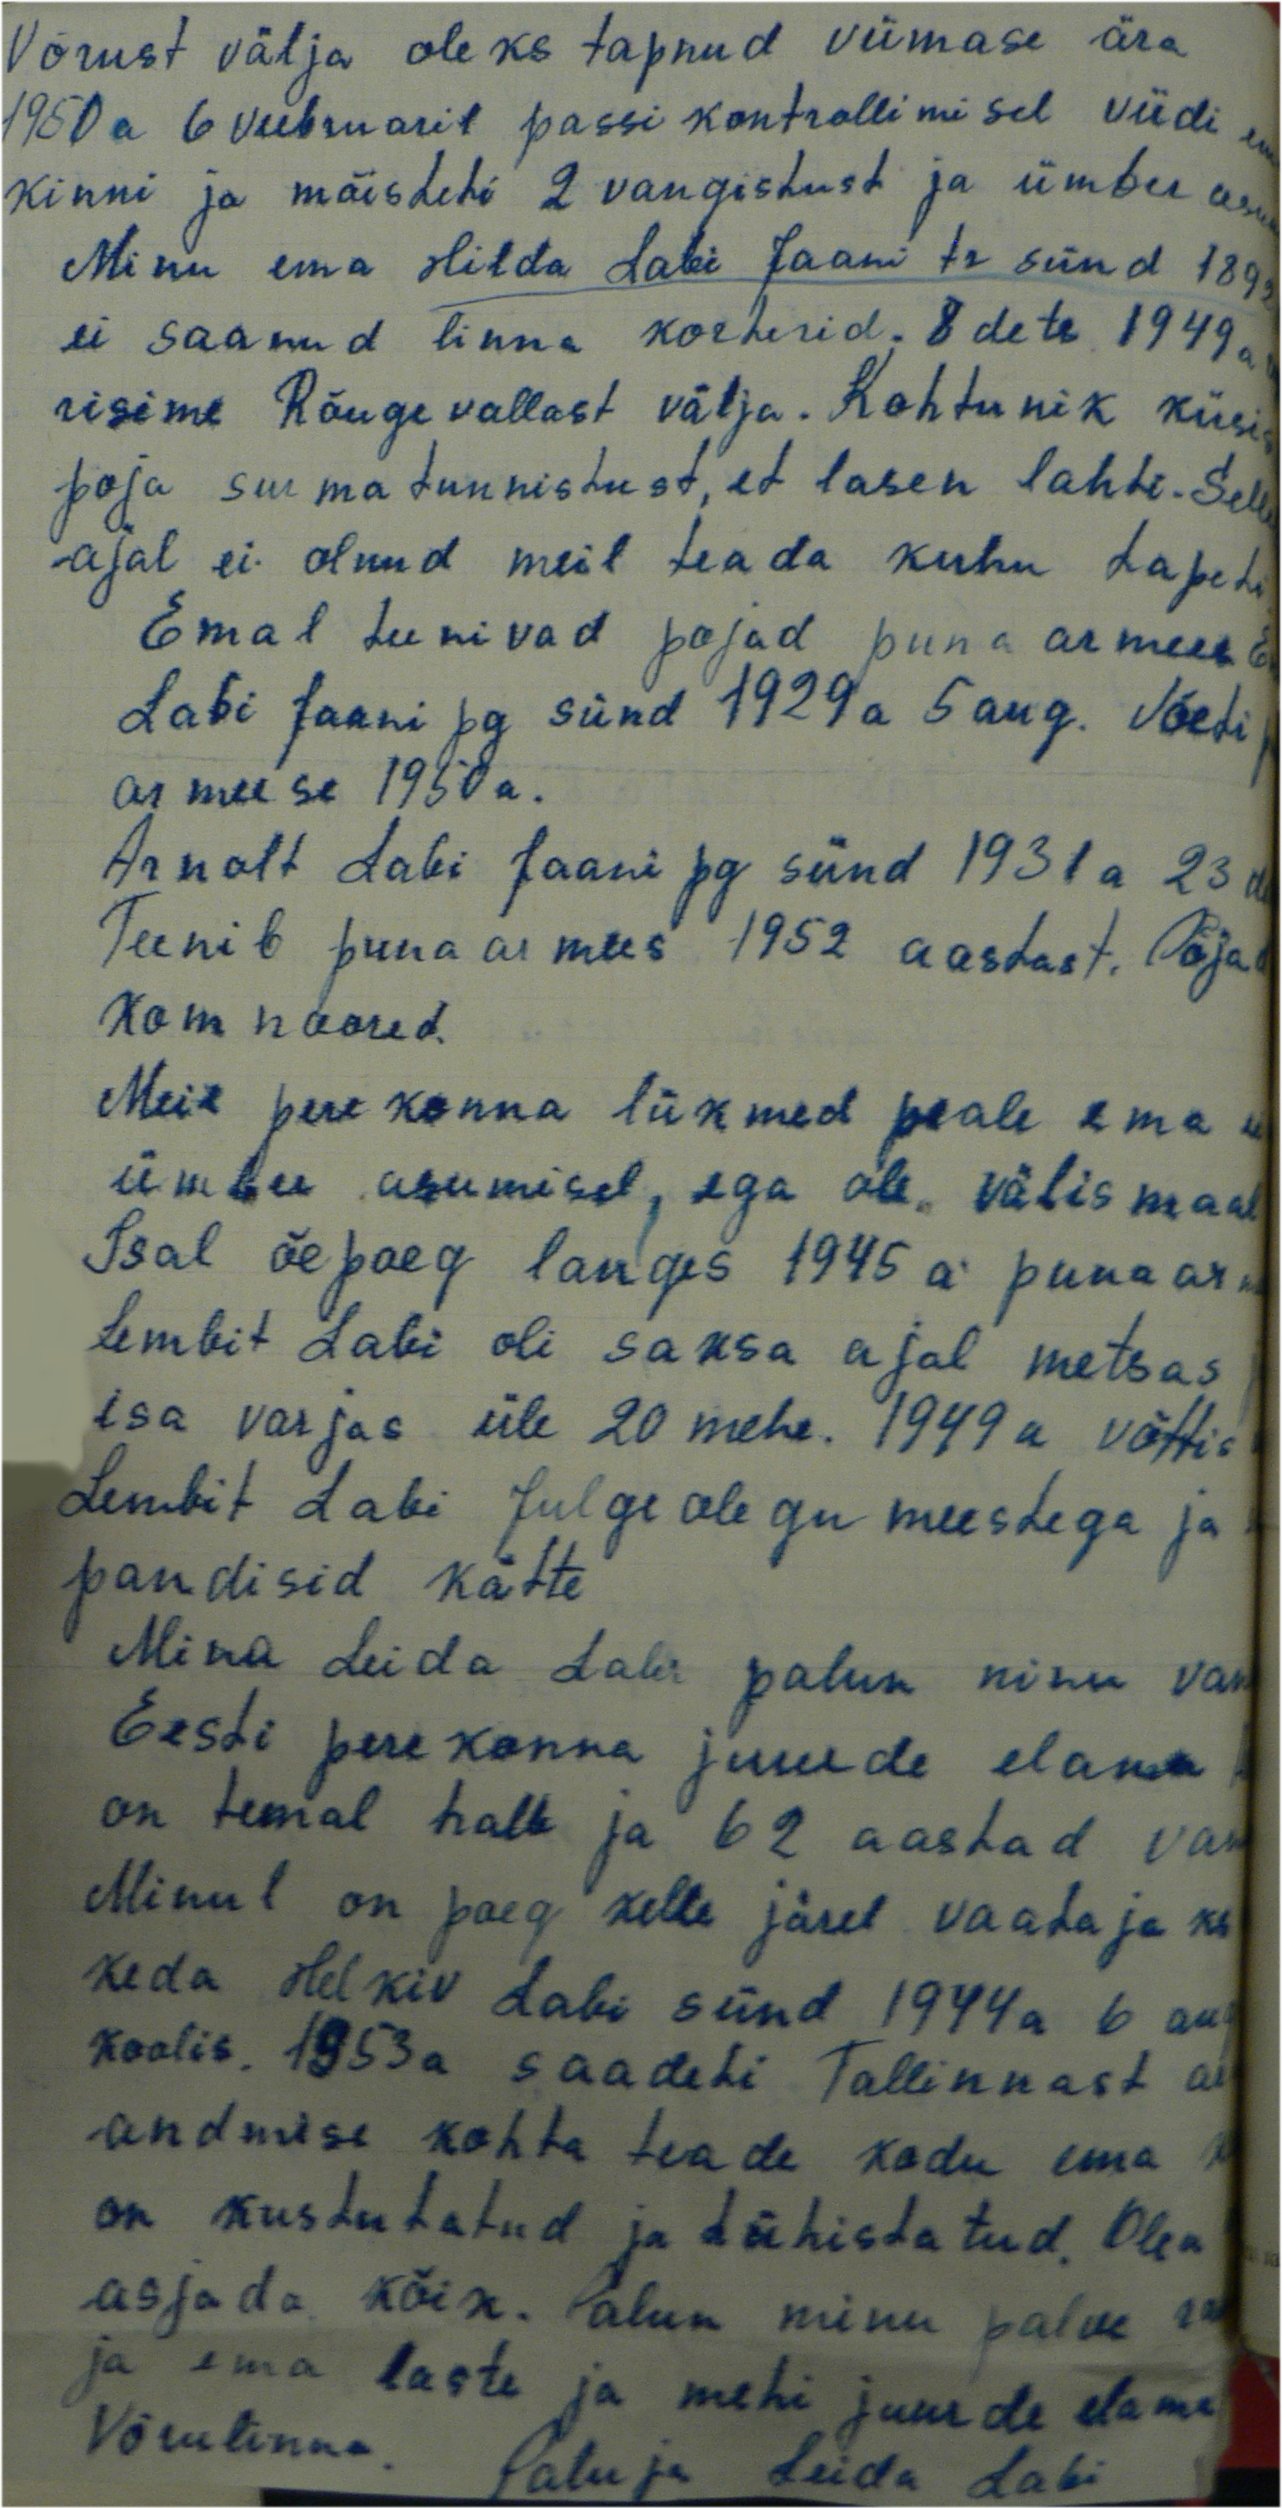 Võrust välja oleks tapnud viimase ära
1950 a 6 veebruaril passi kontrollimisel viidi
kinni ja mõisteti 2 vangistust ja ümber
Minu ema Hilda Labi Jaani tr sünd 189
ei saanud linna korterid. 8 dets 1949 a
risime Rõuge vallast välja. Kohtunik küsis
poja surma tunnistust, et lasen lahti. Selle
ajal ei olnud meil teada kuhu tapeti
Emal teenivad pojad puna armees
Labi Jaani pg sünd 1929 a 5 aug. Võeti
armeese 1950 a.
Arnolt Labi Jaani pg sünd 1931 a 23
Teenib puna armees 1952 aastast. Pojad
kom noored.
Meie perekonna liikmed peale ema ei
ümber asumisel, ega ole välismaal
Isal õepoeg langes 1945 a puna
Lembit Labi oli saksa ajal metsas
isa varjas üle 20 mehe. 1949 a võttis
Lembit Labi Julgeolegu meestega ja
pandisid kätte
Mina Leida Labi palun minu
Eesti perekonna juurde elama
on temal halb ja 62 aastad
Minul on poeg kelle järel vaataja
keda Helkiv Labi sünd 1944 a 6 aug
koolis. 1953 a saadeti Tallinnast
andmise kohta teade kodu ema
on kustutatud ja tühistatud. Olen
asjada kõik. Palun minu palve
ja ema laste ja mehi juurde elama
Võrulinna. Paluja Leida Labi